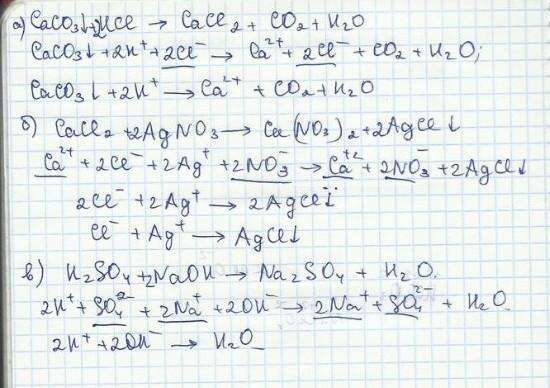 а) CaCO₃↓+2HCl → CaCl₂ + CO₂ + H₂O
CaCO₃↓ + 2H⁺ + 2Cl⁻ → Ca²⁺ + 2Cl⁻ + CO₂ + H₂O;
CaCO₃↓ + 2H⁺ → Ca²⁺ + CO₂ + H₂O
б) CaCl₂ + 2AgNO₃ → Ca(NO₃)₂ + 2AgCl↓
Ca²⁺ + 2Cl⁻ + 2Ag⁺ + 2NO₃⁻ → Ca⁺² + 2NO₃⁻ + 2AgCl↓
2Cl⁻ + 2Ag⁺ → 2AgCl↓
Cl⁻ + Ag⁺ → AgCl↓
в) H₂SO₄ + 2NaOH → Na₂SO₄ + H₂O.
2H⁺ + SO₄²⁻ + 2Na⁺ + 2OH⁻ → 2Na⁺ + SO₄²⁻ + H₂O
2H⁺ + 2OH⁻ → H₂O